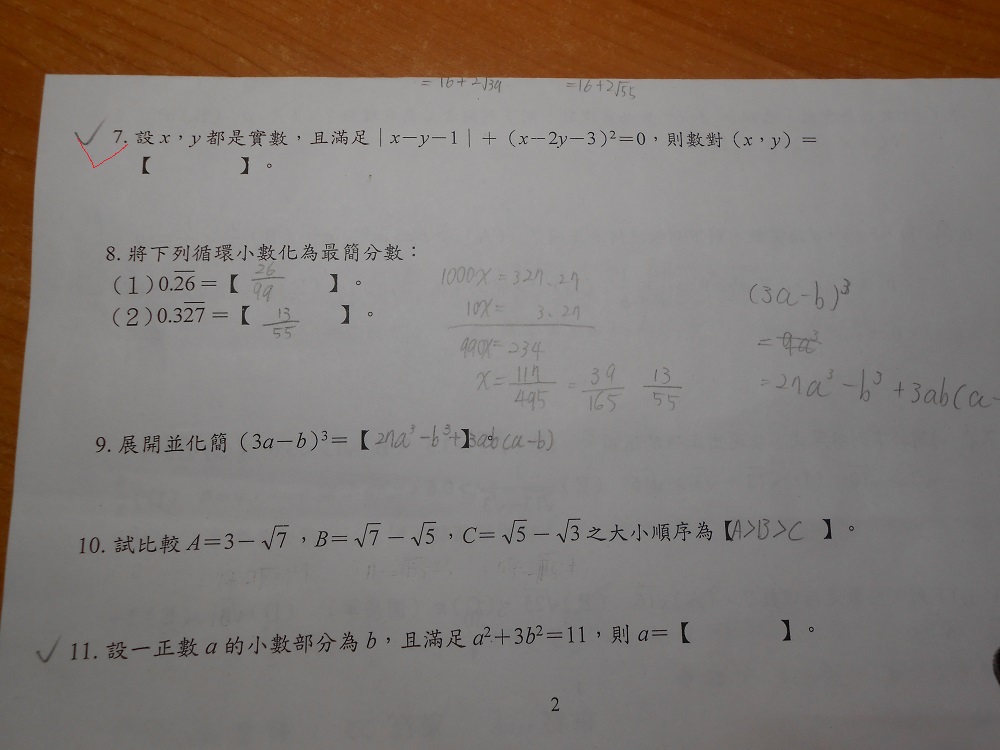 =16+2√39 =16+2√55
7. 設 x，y 都是實數，且滿足 | x－y－1 | + (x－2y－3)²=0，則數對 (x，y) =
【 】。
8. 將下列循環小數化為最簡分數：
(1) 0.2̅6̅ =【 26/99 】。
(2) 0.32̅7̅ =【 13/55 】。
1000x = 327.27
10x = 3.27
990x = 234
x = 117/495 = 39/165 13/55
(3a-b)³
= 9a³
= 27a³ - b³ + 3ab(a-
9. 展開並化簡 (3a－b)³=【 27a³-b³+3ab(a-b) 】。
10. 試比較 A=3－√7，B=√7－√5，C=√5－√3 之大小順序為【 A>B>C 】。
11. 設一正數 a 的小數部分為 b，且滿足 a²+3b²=11，則 a=【 】。
2